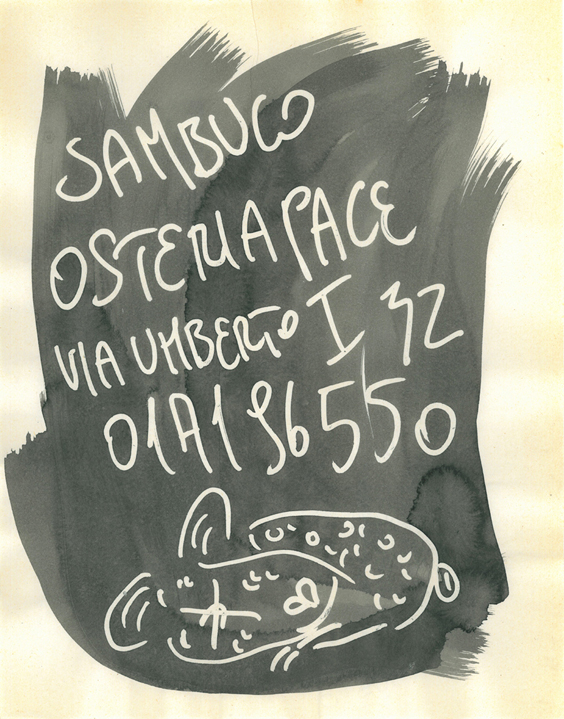 SAMBUCO
OSTERIA PACE
VIA UMBERTO I 32
01A1 96550